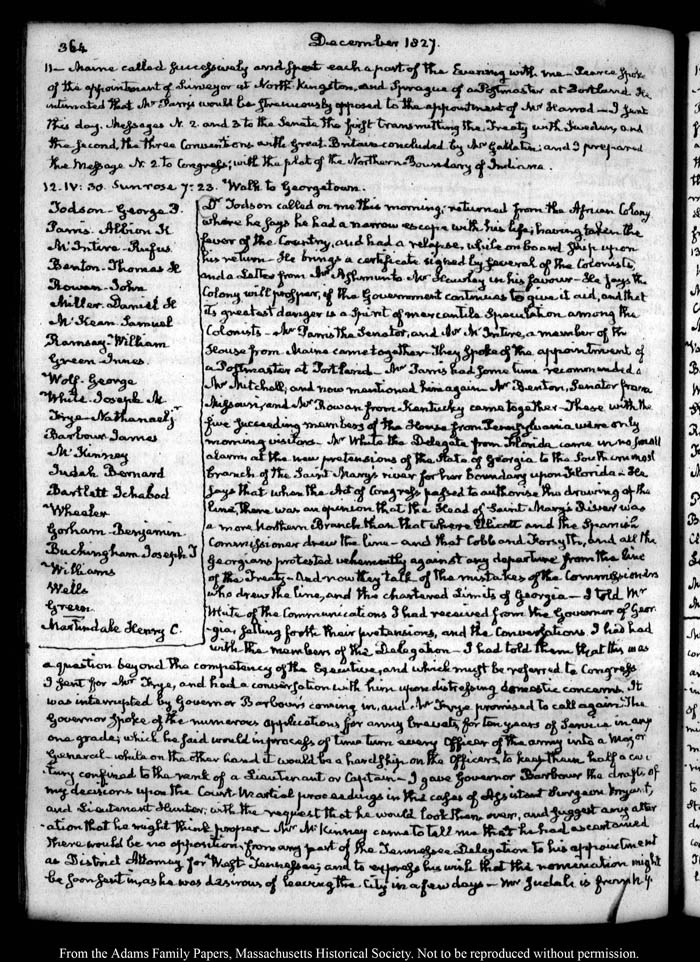 364
December 1827.
11— Maine called successively and spent each a part of the Evening with me— Pearce spoke
of the appointment of Surveyor at North-Kingston, and Sprague of a Postmaster at Portland. He
intimated that Mr Parris would be strenuously opposed to the appointment of Mr Harrod— I sent
this day. Messages N. 2 and 3 to the Senate the first transmitting the Treaty with Sweden, and
the second, the three Conventions with Great-Britain concluded by Mr Gallatin: and I prepared
the Message N. 2 to Congress; with the plat of the Northern Boundary of Indiana.
12. IV: 30. Sun rose 7: 23. Walk to Georgetown.
Todson— George P.
Parris. Albion K
McIntire— Rufus.
Benton— Thomas H
Rowan— John
Miller. Daniel H
McKean Samuel
Ramsay— William
Green— Innes.
Wolf. George
White. Joseph M.
Frye— Nathaniel jr
Barbour James
McKinney
Judah Bernard
Bartlett Ichabod
Wheeler
Gorham— Benjamin
Buckingham Joseph T
Williams
Wells
Green
Martindale Henry C.
Dr Todson called on me this morning; returned from the African Colony
where he says he had a narrow escape with his life; having taken the
fever of the Country, and had a relapse, while on board ship upon
his return— He brings a certificate signed by several of the Colonists,
and a Letter from Mr Ashmun to Mr Gurley in his favour— He says the
Colony will prosper, if the Government continues to give it aid, and that
its greatest danger is a Spirit of mercantile Speculation among the
Colonists— Mr Parris the Senator, and Mr McIntire, a member of the
House from Maine came together— They spoke of the appointment of
a Postmaster at Portland— Mr Parris had some time recommended a
Mr Mitchell; and now mentioned him again— Mr Benton, Senator from
Missouri, and Mr Rowan from Kentucky came together— These with the
five succeeding members of the House from Pennsylvania were only
morning visitors— Mr White the Delegate from Florida came in no small
alarm, at the new pretensions of the State of Georgia to the Southernmost
branch of the Saint Mary's river for her boundary upon Florida— He
says that when the Act of Congress passed to authorise the drawing of the
line, there was an opinion that the Head of Saint-Mary's River was
a more Northern Branch than that where Ellicott and the Spanish
Commissioner drew the line— and that Cobb and Forsyth, and all the
Georgians protested vehemently against any departure from the line
of the Treaty— And now they talk of the mistakes of the Commissioners
who drew the line, and the chartered Limits of Georgia— I told Mr
White of the Communications I had received from the Governor of Geor-
-gia, setting forth their pretensions, and the Conversations I had had
with the members of the Delegation— I had told them that this was
a question beyond the competency of the Executive, and which must be referred to Congress
I sent for Mr Frye, and had a conversation with him upon distressing domestic concerns. It
was interrupted by Governor Barbour's coming in, and Mr Frye promised to call again. The
Governor spoke of the numerous applications for army brevets, for ten years of service in any
one grade; which he said would in process of time turn every Officer of the army into a Major
General— while on the other hand it would be a hardship on the Officers, to keep them half a cen-
-tury confined to the rank of a Lieutenant or Captain— I gave Governor Barbour the drafts of
my decisions upon the Court-Martial proceedings in the cases of Assistant Surgeon Bryant,
and Lieutenant Hunter; with the request that he would look them over, and suggest any alter
-ation that he might think proper— Mr McKinney came to tell me that he had ascertained
there would be no opposition from any part of the Tennessee Delegation to his appointment
as District Attorney for West-Tennessee; and to express his wish that the nomination might
be soon sent in, as he was desirous of leaving the City in a few days— Mr Judah is
From the Adams Family Papers, Massachusetts Historical Society. Not to be reproduced without permission.